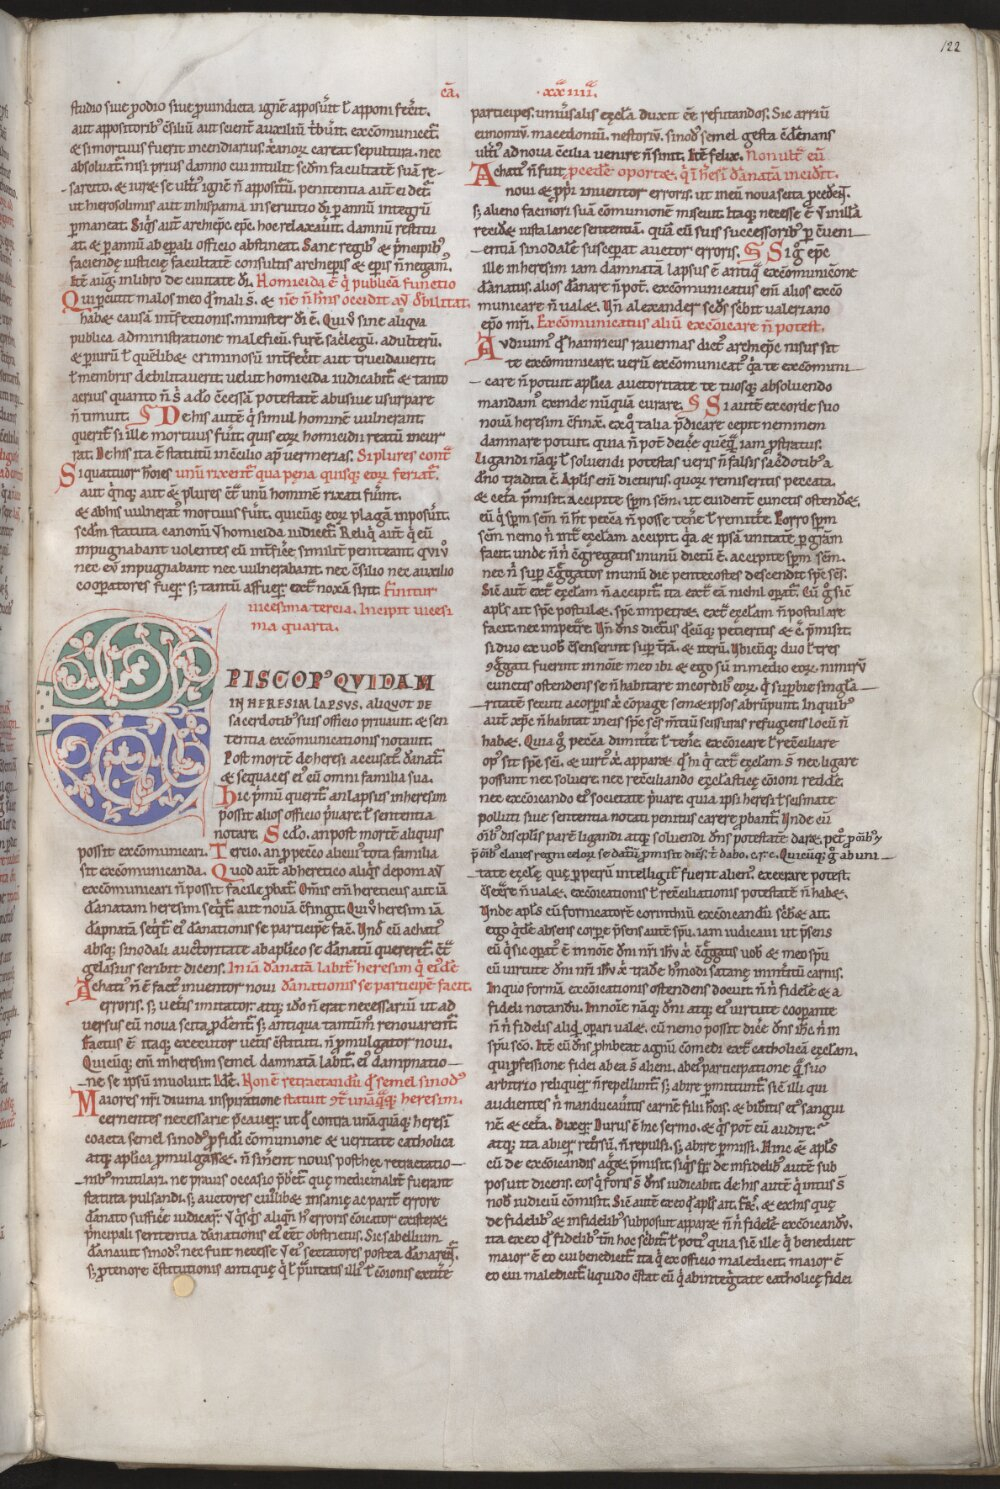 122
cā. .xxiiii.
studio siue ꝓdio siue ꝓuindicta ignē apposuit̄ ł apponi fec̄it.
aut appositoribꝰ ꝯsiliū aut scient̄ auxiliū t̄buit. excōmunicet̄.
& si mortuus fuerit incendiarius. xānorꝫ careat sepultura. nec
absoluat̄. nisi prius damno cui intulit scđm facultatē suā re-
sarcito. & iur& se ult̄iꝰ ignē ñ appositurū. penitentia aut̄ ei det̄.
ut hierosolimis aut in hispania in seruitio đi ꝑ annū integrū
ꝑmaneat. Siq̄s aut̄ archiepc̄. epc̄. hoc relaxauit̄. damnū restitu
at. & ꝑ annū ab epali officio abstineat. Sane regibꝰ & p̄ncipibꝰ
faciendę iusticię facultatē consultis archiep̄is & ep̄is ñ negamꝰ.
Itē aug̅. in libro de ciuitate đi. Homicida ē q̇ publicā functio
Qui percutit malos in eo q̇ mali s̄. & nē ñ hn̄s occidit aut debilitat.
hab& causā int̄fectionis. minister đi ē. Qui ū sine aliqua
publica administratione maleficū. furē. sacˡegū. adulterū.
& ꝑiurū ł quēlibꝫ criminosū int̄fecit aut trucidauerit.
ł membris debilitauerit. uelut homicida iudicabit̄. & tanto
acrius quanto ñ s̄ a đo ꝯcessā potestatē abusiue usurpare
ñ timuit. De his autē q̇ simul hominē uulnerant.
querit̄ si ille mortuus fuit̄. quis eorꝫ homicidii reatū incur
rat. De his ita ē statutū in ꝯcilio ap̄ uermerias. Si plures cont̄
Si quattuor hōies unū rixent̄ qua pena quisq; eorꝫ feriat̄.
aut q̇nq; aut & plures ꝯt̄ unū hominē rixati fuint̄.
& ab his uulnerat̄ mortuus fuit̄. quicūq; eorꝫ plagā imposuit̄.
scđm statuta canonū ut homicida iudicet̄. Reliq̇ aut̄ q̇ eū
inpugnabant uolentes eū int̄ficere similit̄ peniteant. qui ū
nec eū inpugnabant nec uulnerabant. nec ꝯsilio nec auxilio
cooperatores fuer̄. s; tantū affuer̄. ext̄ noxā sint. Finitur
uicesima tercia. Incipit uicesi
ma quarta.
EPISCOPꝰ QVIDAM
IN HERESIM LAPSVS. ALIQVOT DE
sacerdotibꝰ suis officio priuauit. & sen
tentia excōmunicationis notauit.
Post mortē de heresi accusatꝰ dānat̄.
& sequaces eiꝰ cū omni familia sua.
Hic p̄mū querit̄ an lapsus in heresim
possit alios officio p̄uare. ł sententia
notare. Scđo. an post mortē aliquis
possit excōmunicari. Tertio. an ꝓ peccō alicuiꝰ tota familia
sit excōmunicanda. Quod aut̄ ab heretico aliq̇s deponi aut
excōmunicari ñ possit facile ꝓbat̄. Om̄is em̄ hereticus aut iā
dānatam heresim seq̇t̄. aut nouā ꝯfingit. Qui ū heresim iā
dapnatā seq̇t̄. eiꝰ dānationis se participē facit̄. Un̄ cū achatiꝰ
absq; sinodali auctoritate ab aplico se dānatū quereret̄. ꝯt̄
gelasius scribit dicens. In iā dānatā labit̄ heresim q̇ eiꝰ dē
Achatiꝰ ñ ē factꝰ inuentor noui dānationis se participē facit.
erroris. s; uet̄is imitator. atq; ido ñ erat necessariū ut ad
uersus eū noua scita ꝓdirent̄. s; antiqua tantūm̄ renouarent̄.
Factus ē itaq; executor uet̄is ꝯstituti. ñ ꝓmulgator noui.
Quicūq; em̄ in heresim semel damnatā labit̄. eiꝰ dampnatio-
ne se ipsū inuoluit. Idē. Non ē retractandū q̄ semel sinodꝰ
Maiores nr̄i diuina inspiratione statuit ꝯt̄ unāq̄q; heresim.
cernentes necessarie p̄cauer̄. ut q̄ contra unāquāq; heresim
coacta semel sinodꝰ ꝓ fidei cōmunione & ueritate catholica
atq; aplica ꝓmulgass&. ñ sinerent nouis posthec retractatio-
nibꝰ mutilari. ne prauis occasio p̄beret̄ que medicinalit̄ fuerant
statuta pulsandi. s; auctores cuiꝰlib& insanię ac parit̄ errore
dānato sufficere iudicar̄. ut q̇sq̇s aliqn̄ hꝰ erroris ꝯicator existeret.
p̄ncipali sententia dānationis eiꝰ eēt obstrictus. Sic sabellium
dānauit sinodꝰ. nec fuit necesse ut eiꝰ sectatores postea dānarent̄.
s; ꝓ tenore ꝯstitutionis antiquę q̇ ł prauitatis illiꝰ ł cōionis extitēre
participes. uniūsalis eccla duxit cē refutandos. Sic arriū
eunomiū. macedoniū. nestoriū. sinodꝰ semel gesta ꝯdēnans
ult̄iꝰ ad noua ꝯcilia uenire ñ sinit. Itē felix. Non ult̄ eū
Achatiꝰ ñ fuit p̄cedē oport&. q̇ ī h̄esī dānatā incidit.
noui & p̄prii inuentor erroris. ut in eū noua scita p̄cederent̄.
s; alieno facinori suā cōmunionē miscuit. Itaq; necesse ē ut in illā
recid& iusta lance sententiā. quā cū suis successoribꝰ ꝑ ꝯueni-
entiā sinodalē susceperat auctor erroris. Si g̊ epc̄
ille in heresim iam damnatā lapsus ē antiq̄ excōmunicōne
dānatus. alios dānare ñ pot̄. excōmunicatus em̄ alios excō
municare ñ ual&. Un̄ alexander sc̄ds sc̄bit ualeriano
ep̄o mr̄i. Excōmunicatus aliū excōicare ñ potest.
Audiuimꝰ q̄ hainricus rauennas dictꝰ archiepc̄ nisus sit
te excōmunicare. uerū excōmunicatꝰ q̇a te excōmuni-
care ñ potuit aplica auctoritate te tuosq; absoluendo
mandamꝰ exinde nūquā curare. Si autē ex corde suo
nouā heresim ꝯfinx&. ex quo talia p̄dicare cepit neminem
damnare potuit. quia ñ pot̄ deic̄e quēq̄ iam ꝓstratus.
Ligandi nāq; ł soluendi potestas ueris ñ falsis sac̄dotibꝰ a
dn̄o tradita ē. Aplis em̄ dicturus. quorꝫ remiseritis peccata.
& cet̄a. p̄misit. accipite spm̄ sc̄m. ut euident̄ cunctis ostender&.
eū q̇ spm̄ sc̄m ñ h̄t peccā ñ posse ten̄e ł remitt̄e. Porro spm̄
sc̄m nemo ñ int̄ ecclam accipit. q̇a & ipsa unitatē ꝑ gr̄am
facit. unde ñ ñ ꝯgregatis in unū dictū ē. accipite spm̄ sc̄m.
nec ñ sup̄ ꝯgregatos in unū die pentecostes descendit sp̄c sc̄s.
Sic aut̄ ext̄ ecclam ñ accipit̄. ita ext̄ eā nichil opat̄. Cū g̊ sic̄
apls ait sp̄c postulet. sp̄c impetr&. ext̄ ecclam ñ postulare
facit. nec impetˡre. Un̄ dn̄s dictus quēcūq; petieritis & c̄. p̄misit.
si duo ex uob ꝯsenserint sup̄ tr̄ā. & iterū. ubicūq; duo ł tres
ꝯgˡgati fuerint in nōie meo ibi & ego sū in medio eorꝫ. nimirū
cunctis ostendens se ñ habitare in cordibꝰ eorꝫ q̇ supbię singla-
ritatē secuti a corpis x̄ cōpage semetipsos abrūpunt. In quibꝰ
aut̄ xp̄c ñ habitat in eis sp̄c sc̄s mentiū scissuras refugiens locū ñ
hab&. Quia g̊ peccā dimitt̄e. ł ten̄e. excōicare ł recˡciliare
opꝰ sit sp̄c sc̄i. & uirtꝰ x̄. appar& q̇ in q̇ ext̄ ecclam s̄ nec ligare
possunt nec soluere. nec recˡciliando eccl̄asticę cōioni redd̄e.
nec excōicando eiꝰ societate p̄uare. quia ipsi heresi ł scismate
polluti siue sententia notati penitus carere ꝓbant̄. Unde cū
ōibꝰ disciplis parē ligandi atq; soluendi dn̄s potestatē dar&. pet̄ ꝓ ōibꝰ
p̄ ōibꝰ claues regni celoꝫ se datū p̄misit dic̄s. t̄ dabo. c. r. c. Quicūq; g̊ ab uni-
tate ecclę que ꝑ petrū intelligit̄ fuerit alienꝰ. execrare potest.
ꝯsecrare ñ ual&. excōicationis ł recˡciliationis potestatē ñ hab&.
Unde apls cū fornicatorē corinthiū excōicandū sc̄bet ait.
ego q̇dē absens corpe p̄sens autē spu. iam iudicaui ut p̄sens
eū q̇ sic opatꝰ ē in nōie dn̄i nr̄i ihu x̄ ꝯgˡgatis uob & meo spu
cū uirtute dn̄i nr̄i ihu x̄ tradere hꝰmodi satanę in int̄itū carnis.
In quo formā excōicationis ostendens docuit. ñ ñ fidelē & a
fideli notandū. In nōie nāq; dn̄i atq; eiꝰ uirtute coopante
ñ ñ fidelis aliq̇d opari ual&. cū nemo possit dic̄e dn̄s ihc̄ ñ in
spu sc̄o. Itē cū dn̄s ꝓhibeat agnū comedi ext̄ catholicā ecclam.
qui professione fidei ab ea s̄ alieni. ab eiꝰ participatione q̄ suo
arbitrio reliquer̄ ñ repellunt̄. s; abire ꝑmittunt̄. sic̄ illi qui
audientes ñ manducauitis carnē filii hōis. & bibitis eiꝰ sangui
nē. & cet̄a. Dixer̄. Durus ē hic sermo. & q̇s pot̄ eū audire.
atq; ita abier̄ ret̄rsū. ñ repulsi. s; abire ꝑmissi. Hinc & apls
cū de excōicandis ager&. p̄misit. siq̇s fr̄. de infidelibꝰ autē sub
posuit dicens. eos q̇ foris s̄ dn̄s iudicabit. de his autē q̇ intus s̄
nob iudiciū cōmisit. Sic̄ autē ex eo q̄ apls ait. Fr̄. & ex his quę
de fidelibꝰ & infidelibꝰ subposuit appar& ñ ñ fidelē excōicandū.
ita ex eo q̄ fidelibꝰ tm̄ hoc sc̄bit̄. ł potiꝰ quia sic̄ ille q̇ benedicit
maior ē eo cui benedicit̄. ita q̇ ex officio maledicit. maior ē
eo cui maledicit̄. liquido ꝯstat eū q̇ ab integˡtate catholicę fidei